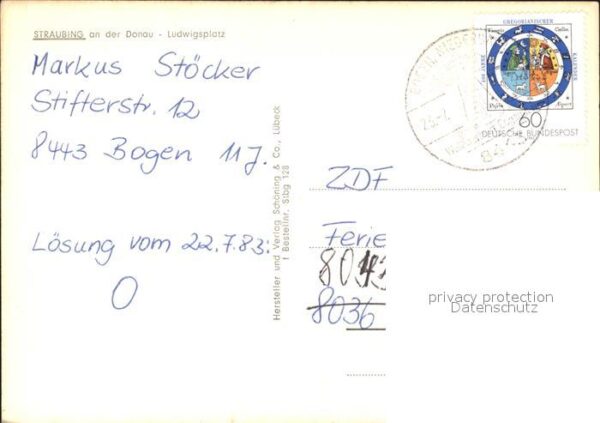 STRAUBING an der Donau - Ludwigsplatz
Markus Stöcker
Stifterstr. 12
8443 Bogen 11 J.
Lösung vom 22.7.83:
O
Hersteller und Verlag Schöning & Co., Lübeck
Bestellnr. Stbg 128
GREGORIANISCHER
KALENDER
400 JAHRE
60
DEUTSCHE BUNDESPOST
ZDF
Ferie
8043
8036
privacy protection
Datenschutz